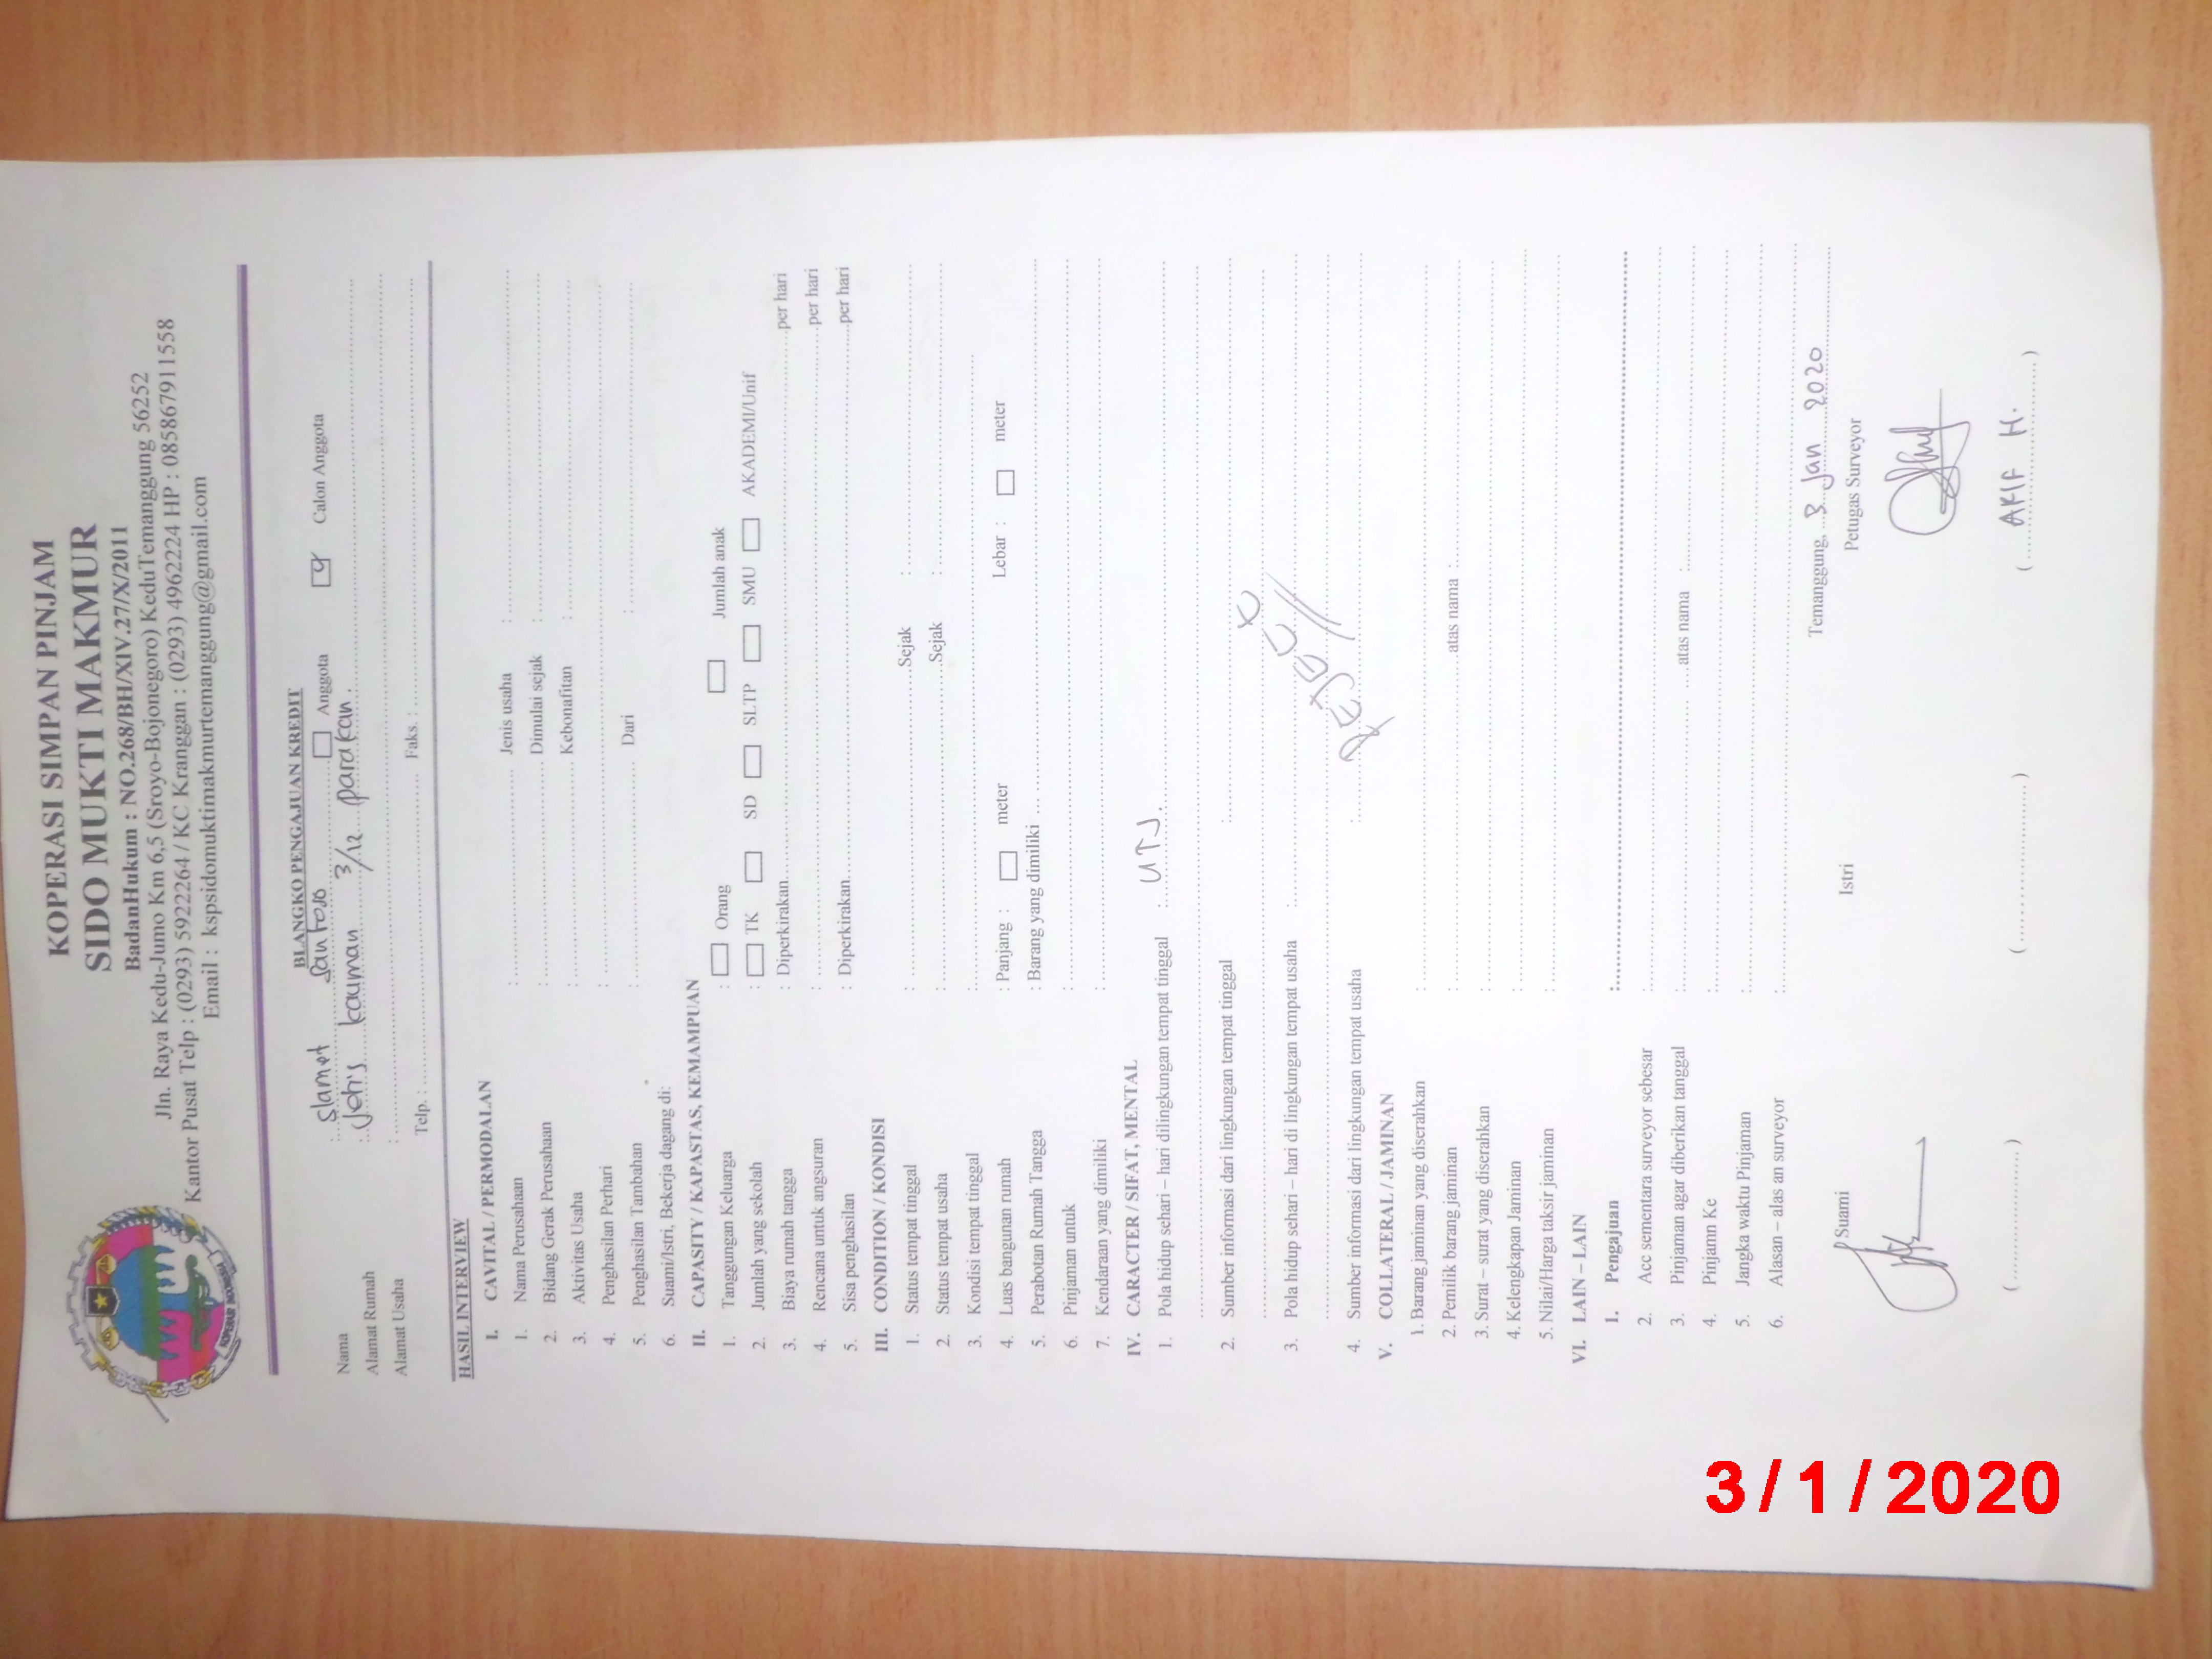 KOPERASI SIMPAN PINJAM
SIDO MUKTI MAKMUR
BadanHukum : NO.268/BH/XIV.27/X/2011
Jln. Raya Kedu-Jumo Km 6,5 (Sroyo-Bojonegoro) KeduTemanggung 56252
Kantor Pusat Telp : (0293) 5922264 / KC Kranggan : (0293) 4962224 HP : 085867911558
Email : kspsidomuktimakmurtemanggung@gmail.com
BLANGKO PENGAJUAN KREDIT
Nama : Slamet Santoso Anggota Calon Anggota
Alamat Rumah : kauman 3/12 parakan.
Alamat Usaha :
Telp. : Faks. :
HASIL INTERVIEW
I. CAVITAL / PERMODALAN
1. Nama Perusahaan : Jenis usaha :
2. Bidang Gerak Perusahaan : Dimulai sejak :
3. Aktivitas Usaha : Kebonafitan :
4. Penghasilan Perhari :
5. Penghasilan Tambahan : Dari :
6. Suami/Istri, Bekerja dagang di:
II. CAPASITY / KAPASTAS, KEMAMPUAN
1. Tanggungan Keluarga : Orang Jumlah anak
2. Jumlah yang sekolah : TK SD SLTP SMU AKADEMI/Unif
3. Biaya rumah tangga : Diperkirakan per hari
4. Rencana untuk angsuran : per hari
5. Sisa penghasilan : Diperkirakan per hari
III. CONDITION / KONDISI
1. Status tempat tinggal : Sejak :
2. Status tempat usaha : Sejak :
3. Kondisi tempat tinggal :
4. Luas bangunan rumah : Panjang : meter Lebar : meter
5. Perabotan Rumah Tangga : Barang yang dimiliki
6. Pinjaman untuk :
7. Kendaraan yang dimiliki :
IV. CARACTER / SIFAT , MENTAL
1. Pola hidup sehari – hari dilingkungan tempat tinggal : UTJ.
2. Sumber informasi dari lingkungan tempat tinggal :
3. Pola hidup sehari – hari di lingkungan tempat usaha :
4. Sumber informasi dari lingkungan tempat usaha :
V. COLLATERAL / JAMINAN
1. Barang jaminan yang diserahkan :
2. Pemilik barang jaminan : atas nama :
3. Surat – surat yang diserahkan :
4. Kelengkapan Jaminan :
5. Nilai/Harga taksir jaminan :
VI. LAIN – LAIN
1. Pengajuan :
2. Acc sementara surveyor sebesar :
3. Pinjaman agar diberikan tanggal : atas nama :
4. Pinjamn Ke :
5. Jangka waktu Pinjaman :
6. Alasan – alas an surveyor :
Temanggung, 3 Jan 2020
Suami Istri Petugas Surveyor
( ) ( ) ( ARIF H. )
3/1/2020